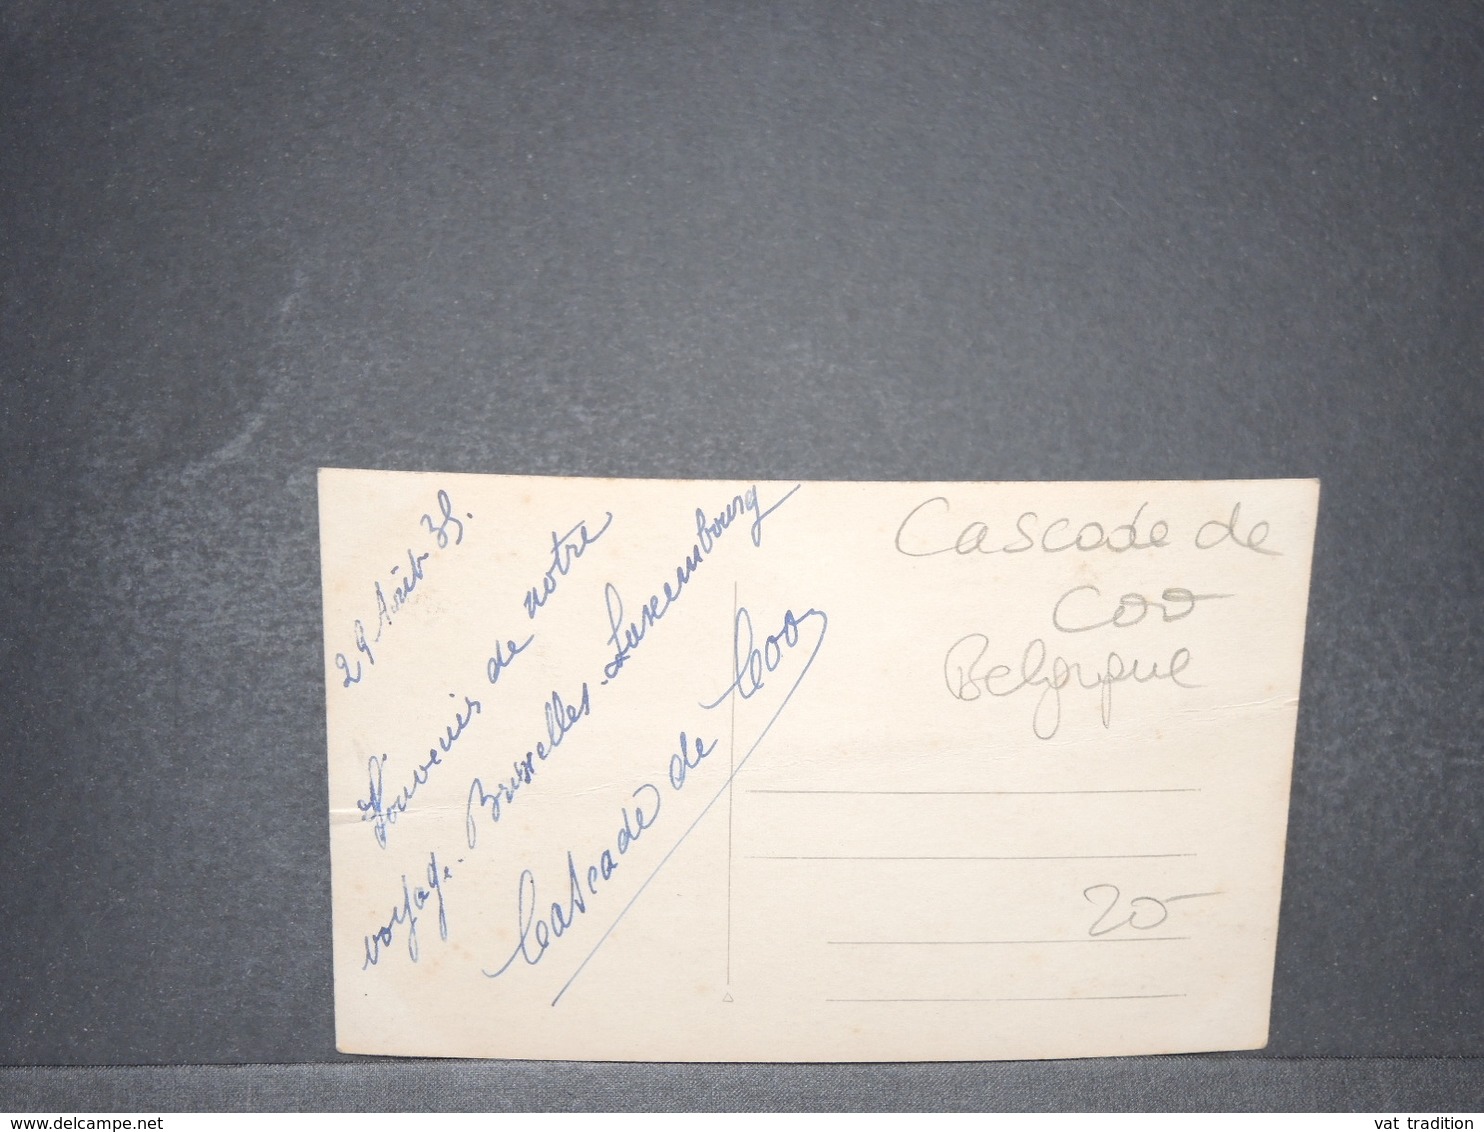 29 Août 35.
Souvenir de notre
voyage. Bruxelles-Luxembourg
Cascade de Coo
Cascade de
Coo
Belgique
20-
www.delcampe.net
vat tradition